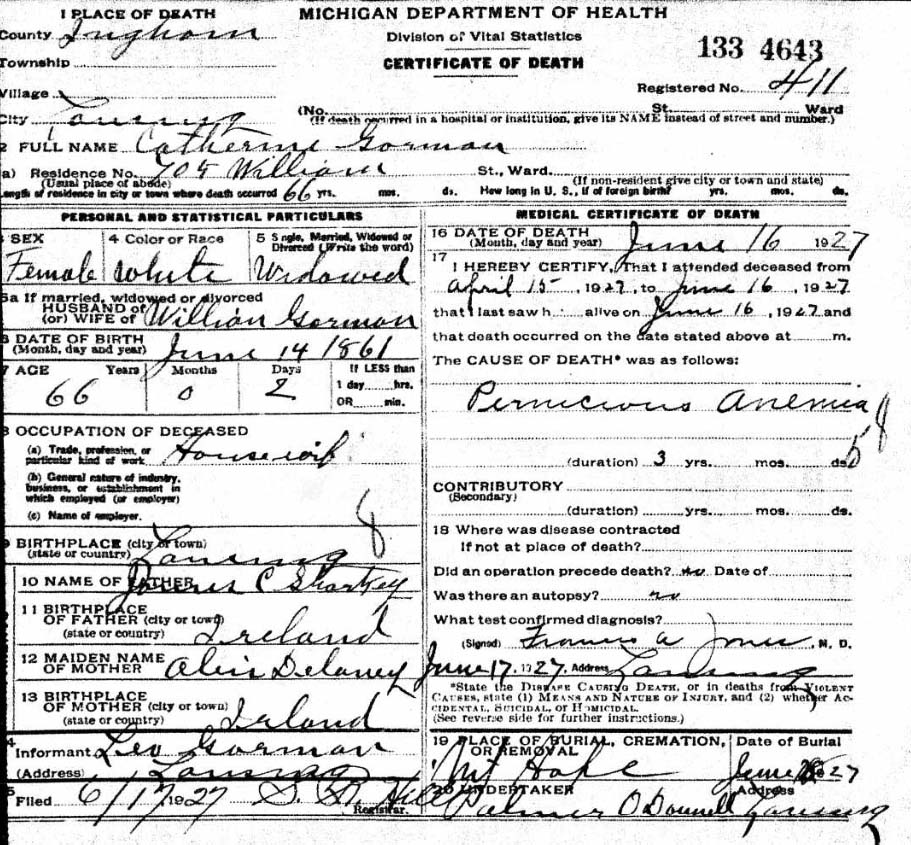 1 PLACE OF DEATH
MICHIGAN DEPARTMENT OF HEALTH
County Ingham
Division of Vital Statistics
133 4643
Township
CERTIFICATE OF DEATH
Village
Registered No. 411
City Lansing
(No. St. Ward
(If death occurred in a hospital or institution, give its NAME instead of street and number.)
2 FULL NAME Catherine Gorman
a) Residence No. 705 William St., Ward.
(Usual place of abode)
(If non-resident give city or town and state)
Length of residence in city or town where death occurred 66 yrs. mos. ds. How long in U. S., if of foreign birth? yrs. mos. ds.
PERSONAL AND STATISTICAL PARTICULARS
3 SEX
4 Color or Race
5 Single, Married, Widowed or Divorced (Write the word)
Female White Widowed
5a If married, widowed or divorced
HUSBAND of
(or) WIFE of William Gorman
6 DATE OF BIRTH
(Month, day and year) June 14 1861
7 AGE Years Months Days If LESS than
1 day hrs.
OR min.
66 0 2
8 OCCUPATION OF DECEASED
(a) Trade, profession, or
particular kind of work Housewife
(b) General nature of industry,
business, or establishment in
which employed (or employer)
(c) Name of employer.
8
9 BIRTHPLACE (city or town)
(state or country) Lansing
10 NAME OF FATHER James C Sharkey
11 BIRTHPLACE
OF FATHER (city or town)
(state or country) Ireland
12 MAIDEN NAME
OF MOTHER Delaney
13 BIRTHPLACE
OF MOTHER (city or town)
(state or country) Irland
14
Informant Leo Gorman
(Address) Lansing
15
Filed 6/17 1927
Registrar.
MEDICAL CERTIFICATE OF DEATH
16 DATE OF DEATH
(Month, day and year) June 16 1927
17
I HEREBY CERTIFY, That I attended deceased from
April 15, 1927, to June 16, 1927
that I last saw h alive on June 16, 1927 and
that death occurred on the date stated above at m.
The CAUSE OF DEATH* was as follows:
Pernicious Anemia
58
(duration) 3 yrs. mos. ds.
CONTRIBUTORY
(Secondary)
(duration) yrs. mos. ds.
18 Where was disease contracted
If not at place of death?
Did an operation precede death? no Date of
Was there an autopsy? no
What test confirmed diagnosis?
(Signed) Francis A Jones, M. D.
June 17. 1927. Address Lansing
*State the DISEASE CAUSING DEATH, or in deaths from VIOLENT
CAUSES, state (1) MEANS AND NATURE OF INJURY, and (2) whether AC-
CIDENTAL, SUICIDAL, or HOMICIDAL.
(See reverse side for further instructions.)
19 PLACE OF BURIAL, CREMATION,
OR REMOVAL
Date of Burial
Mt Hope June 1927
20 UNDERTAKER
Address
Palmer O Donnell Lansing